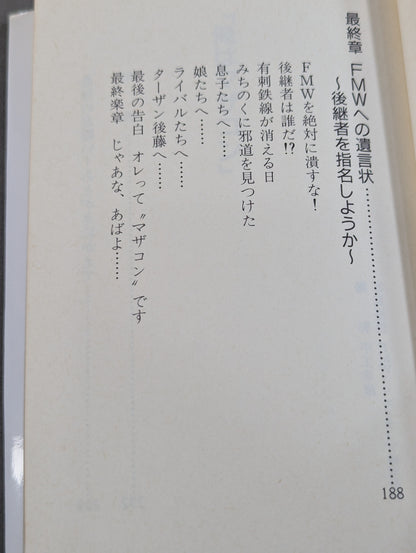 最終章 FMWへの遺言状……………………188
〜後継者を指名しようか〜
FMWを絶対に潰すな!
後継者は誰だ!?
有刺鉄線が消える日
みちのくに邪道を見つけた
息子たちへ……
娘たちへ……
ライバルたちへ……
ターザン後藤へ……
最後の告白 オレって〝マザコン〟です
最終楽章 じゃあな、あばよ……